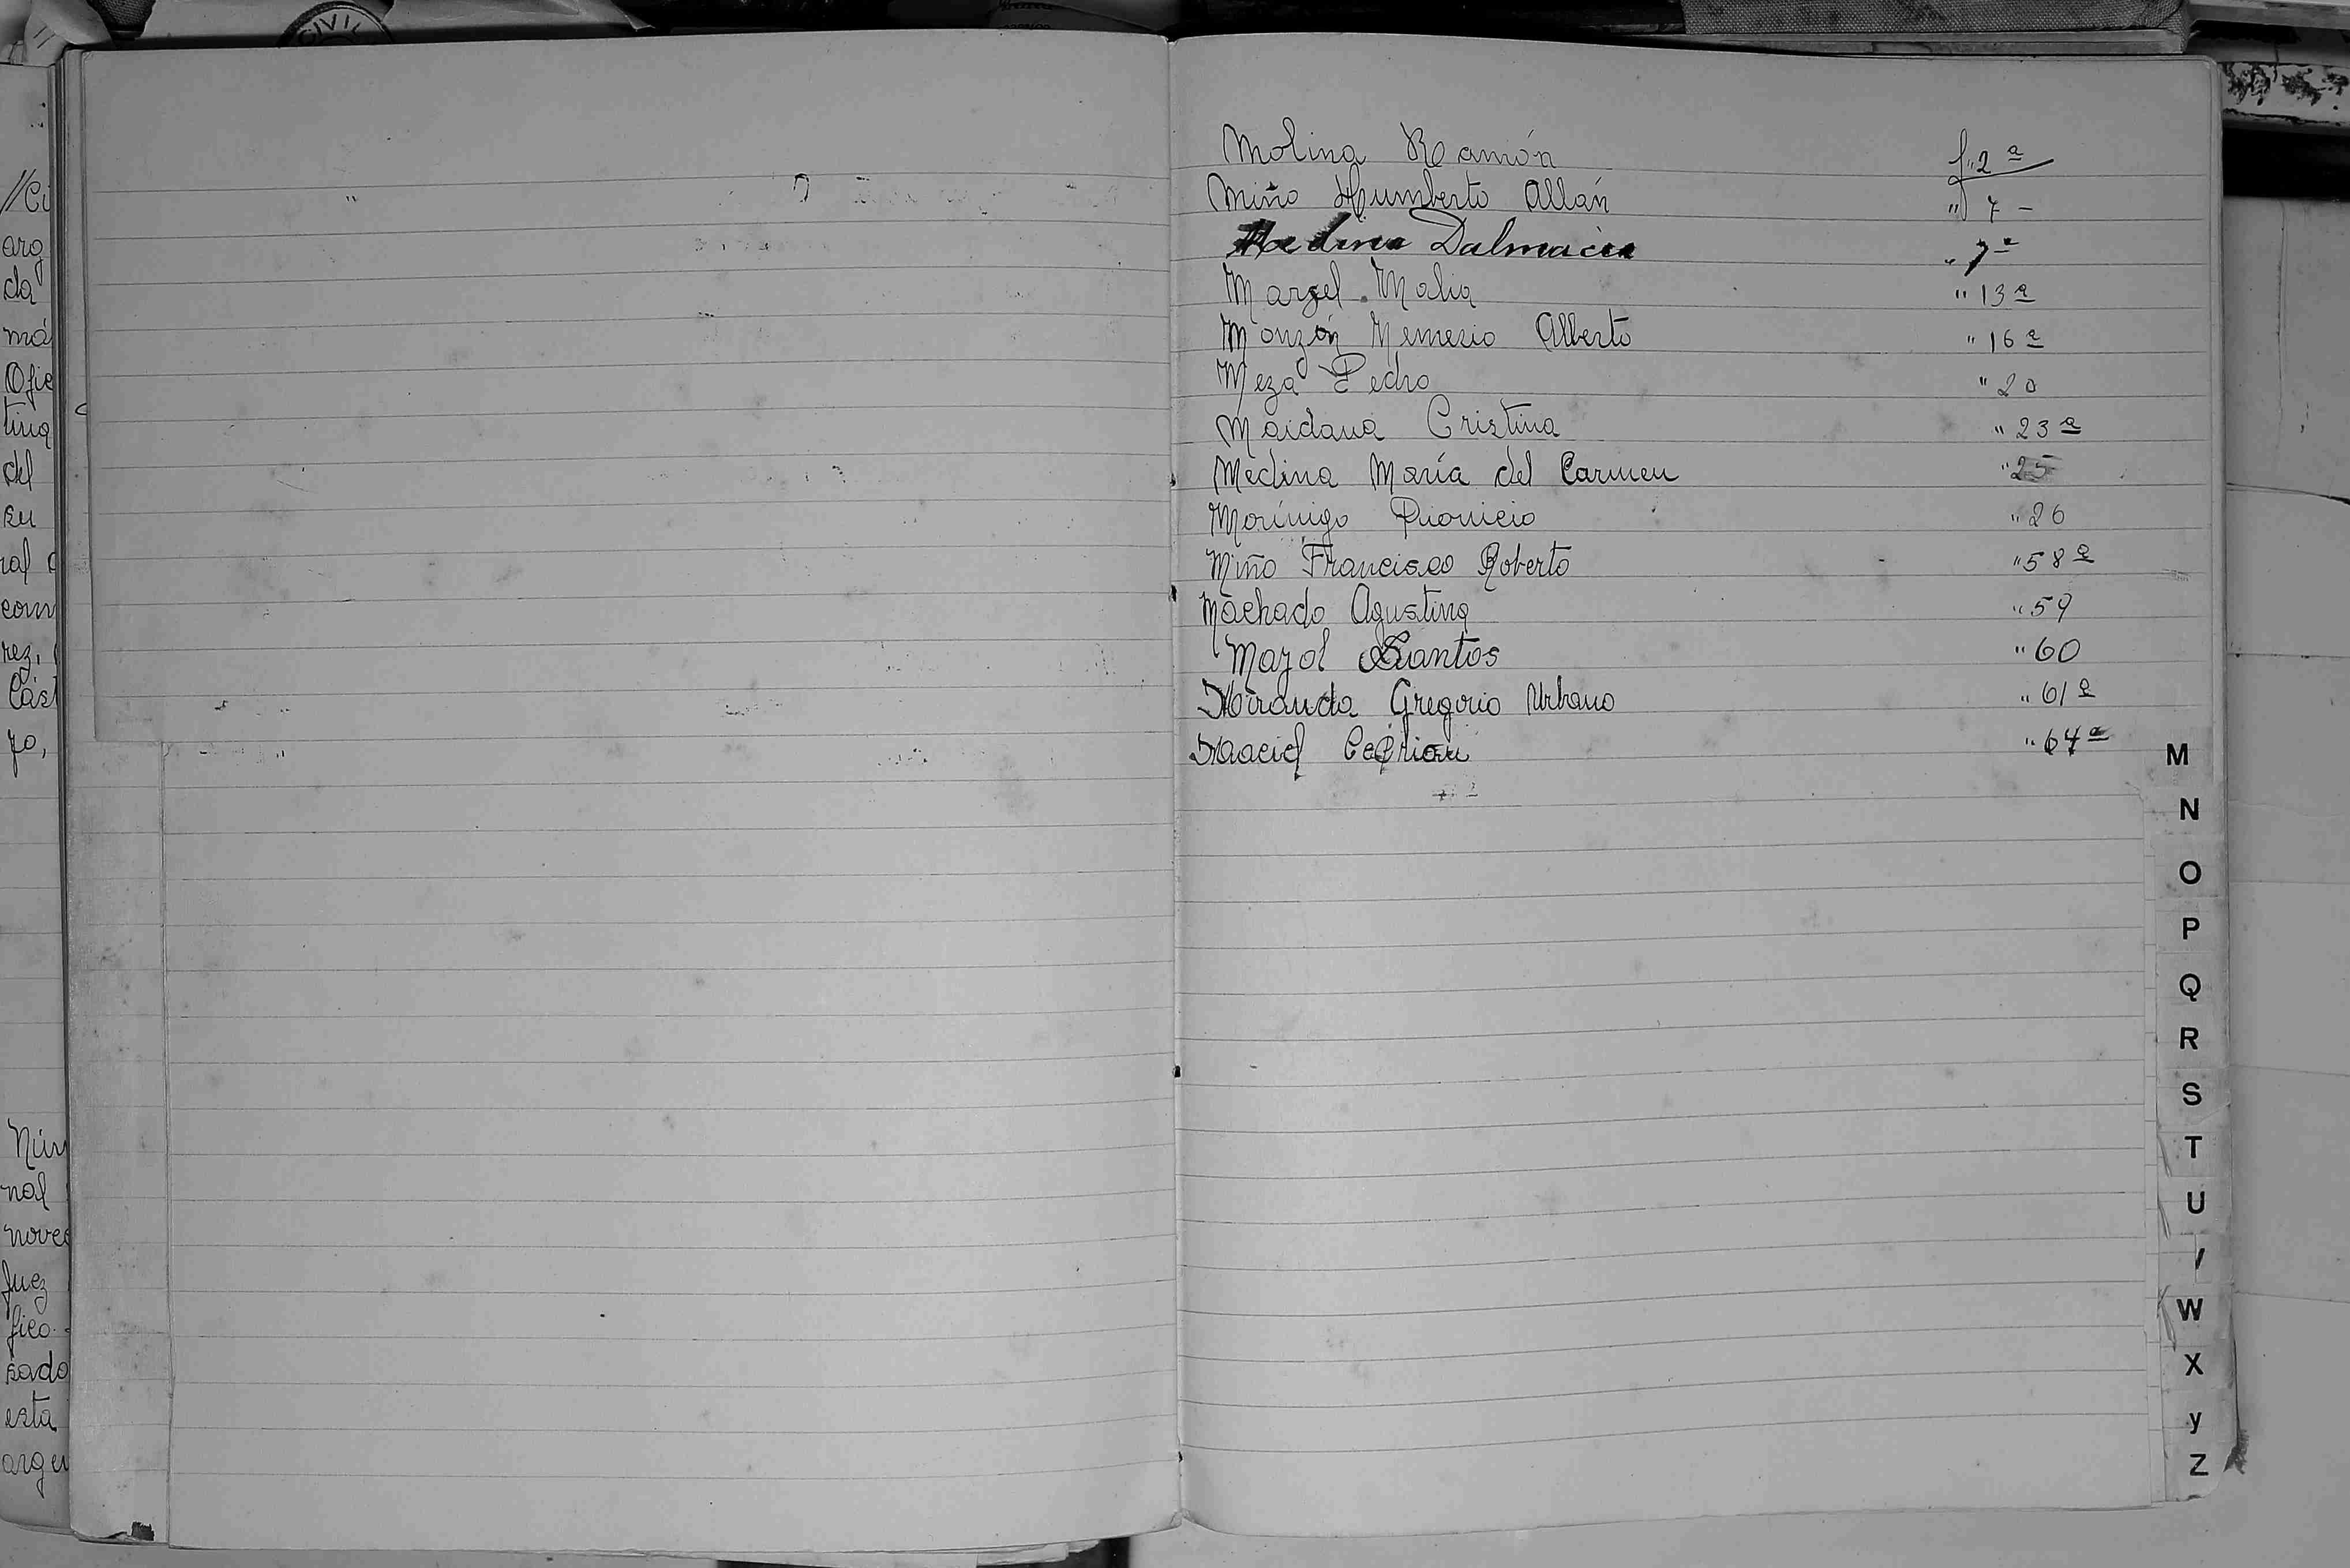 CIVIL
//Ci
arg
da
má
Ofic
tina
del
su
ral
com
rez,
Cást
yo,
Núm
nal
nove
Juez
fico
sado
esta
argu
Molina Ramón f. 2ª
Miño Humberto Allán " 7 -
Medina Dalmacia " 7ª
Margel Malia " 13ª
Monzón Nemesio Alberto " 16ª
Meza Pedro " 20
Maidana Cristina " 23ª
Medina María del Carmen " 25
Morínigo Dionicio " 26
Miño Francisco Roberto " 58ª
Machado Agustina " 59
Mazol Santos " 60
Miranda Gregorio Urbano " 61ª
Maciel Ceprian " 64ª
M
N
O
P
Q
R
S
T
U
W
X
y
Z